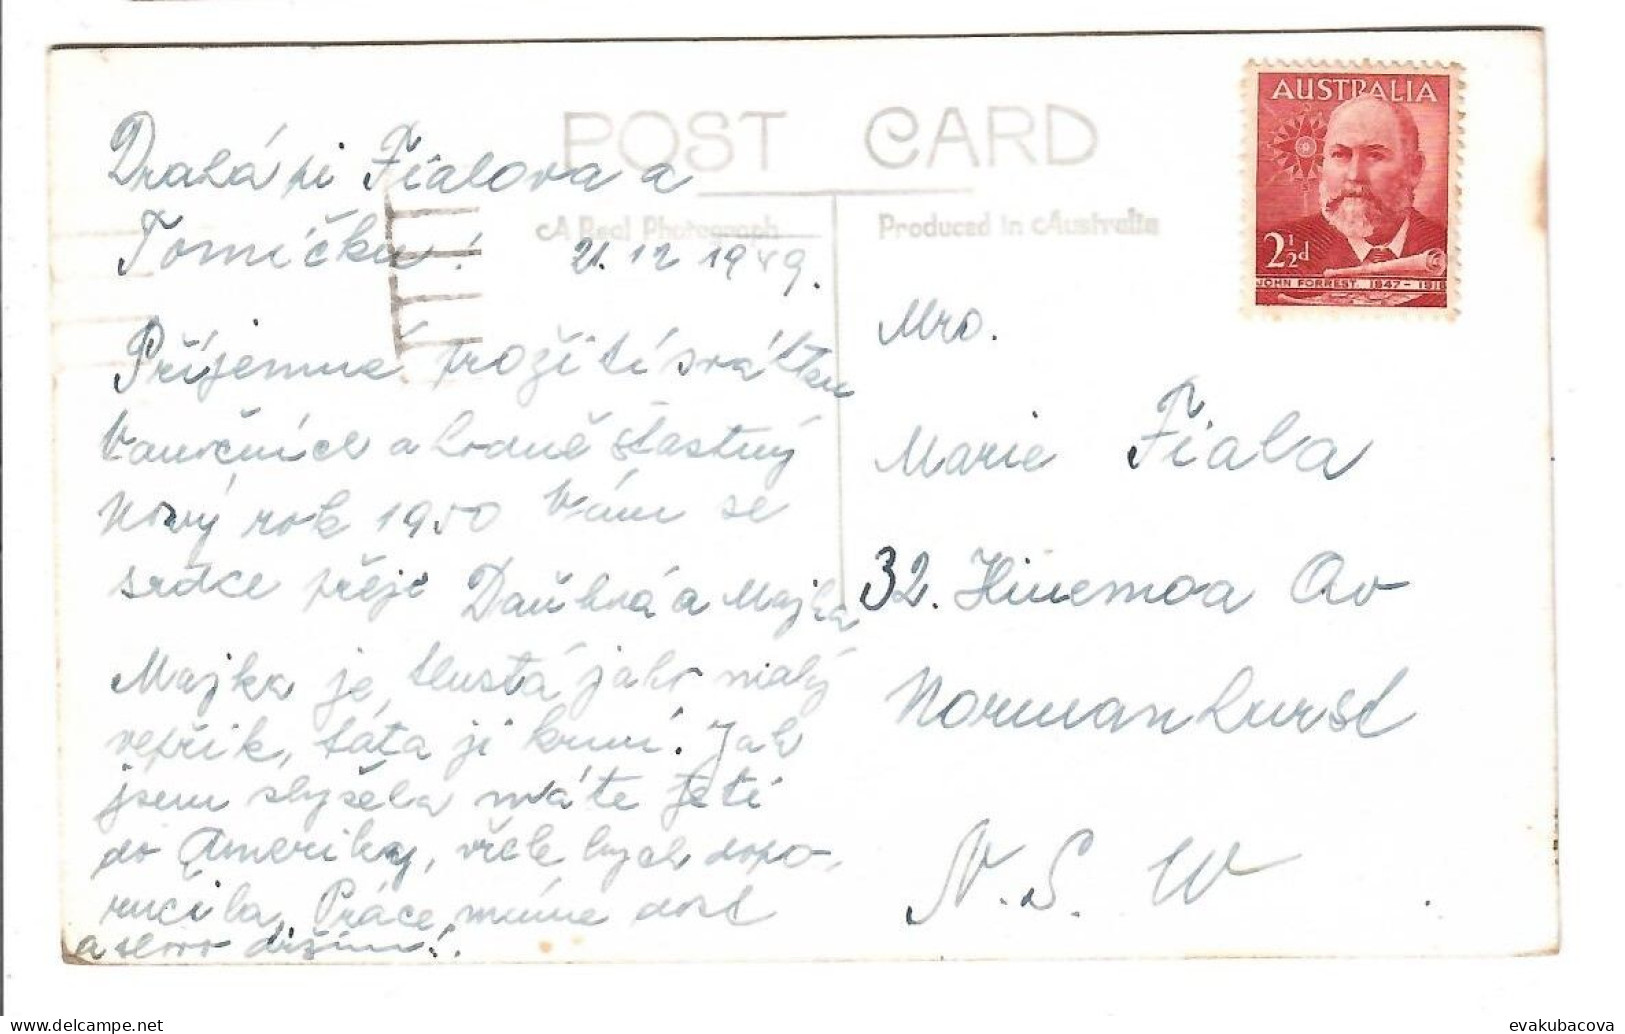 POST CARD
A Real Photograph
Produced in Australia
AUSTRALIA
2½d
JOHN FORREST. 1847 - 1918
Drahá pí Fialova a
Tomíčku!
21.12 1949.
Příjemné prožití svátku
Vánočních a hodně šťastný
Nový rok 1950 Vám se
srdce přeje a Majka
Majka je tlustá jako malý
vepřik, táta ji krmí. Jak
jsem slyšela máte jeti
do Ameriky, vřele bych dopo-
ručila, Práce máme dost
a slovo držím!
Mrs.
Marie Fiala
32. Hinemoa Av
Normanhurst
N.S.W.
evakubacova